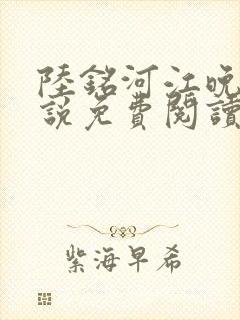 陸銘河江晚
說免費閱讀
紫海早希